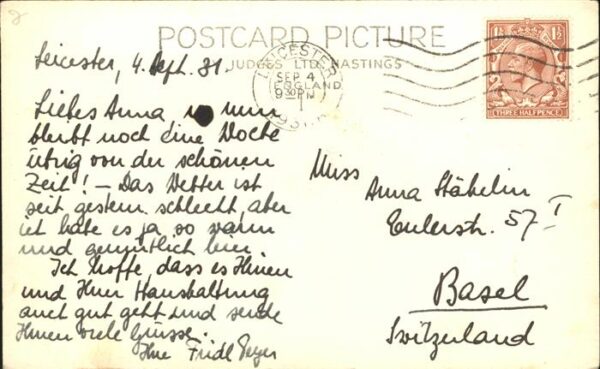 POSTCARD PICTURE
JUDGES LTD HASTINGS
LEICESTER
SEP 4
ENGLAND
1931
1½ 1½
THREE HALF PENCE
Leicester, 4. Sept. 31.
Liebes Anna, nun
bleibt noch eine Woche
übrig von der schönen
Zeit! – Das Wetter ist
seit gestern schlecht, aber
ich habe es ja so warm
und gemütlich hier.
Ich hoffe, dass es Ihnen
und Ihrer Haushaltung
auch gut geht und sende
Ihnen viele Grüsse.
Ihre Fridl
Miss
Anna Stähelin
Eulerstr. 57 I
Basel
Switzerland